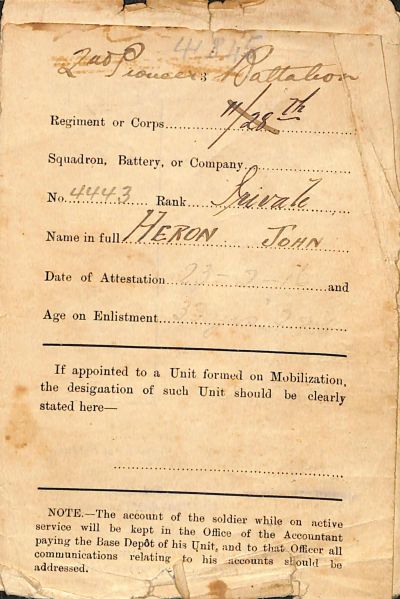 2nd Pioneer 3 Battalion
Regiment or Corps 11/28th
Squadron, Battery, or Company
No. 4443 Rank Private
Name in full HERON JOHN
Date of Attestation 23 and
Age on Enlistment
If appointed to a Unit formed on Mobilization,
the designation of such Unit should be clearly
stated here—
NOTE.—The account of the soldier while on active
service will be kept in the Office of the Accountant
paying the Base Depôt of his Unit, and to that Officer all
communications relating to his accounts should be
addressed.